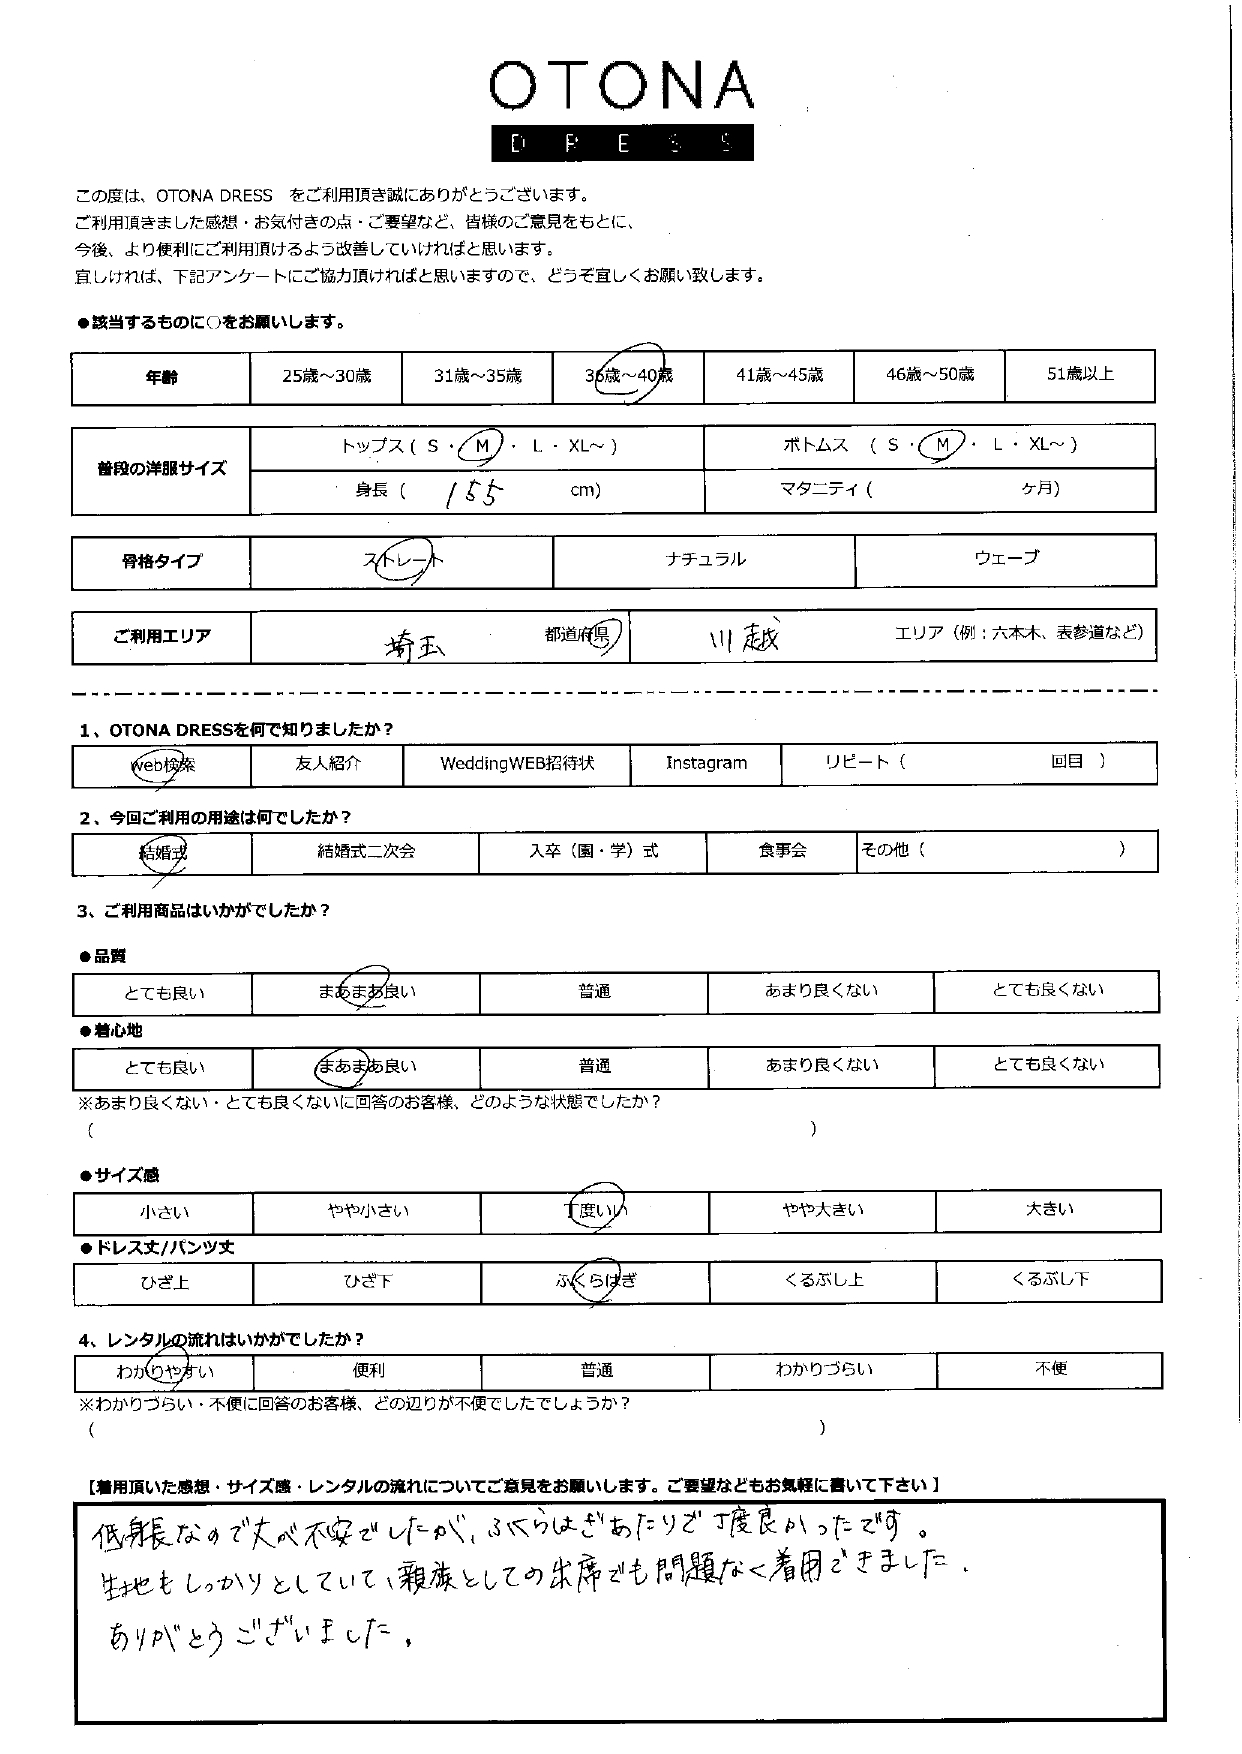 OTONA
DRESS
この度は、OTONA DRESS をご利用頂き誠にありがとうございます。
ご利用頂きました感想・お気付きの点・ご要望など、皆様のご意見をもとに、
今後、より便利にご利用頂けるよう改善していければと思います。
宜しければ、下記アンケートにご協力頂ければと思いますので、どうぞ宜しくお願い致します。
●該当するものに○をお願いします。
年齢 25歳～30歳 31歳～35歳 36歳～40歳 41歳～45歳 46歳～50歳 51歳以上
普段の洋服サイズ トップス ( S ・ M ・ L ・ XL～ ) ボトムス ( S ・ M ・ L ・ XL～ )
身長 ( 155 cm) マタニティ ( ヶ月)
骨格タイプ ストレート ナチュラル ウェーブ
ご利用エリア 埼玉 都道府県 川越 エリア（例：六本木、表参道など）
1、OTONA DRESSを何で知りましたか？
web検索 友人紹介 WeddingWEB招待状 Instagram リピート（ 回目 ）
2、今回ご利用の用途は何でしたか？
結婚式 結婚式二次会 入卒（園・学）式 食事会 その他（ ）
3、ご利用商品はいかがでしたか？
●品質
とても良い まあまあ良い 普通 あまり良くない とても良くない
●着心地
とても良い まあまあ良い 普通 あまり良くない とても良くない
※あまり良くない・とても良くないに回答のお客様、どのような状態でしたか？
( )
●サイズ感
小さい やや小さい 丁度いい やや大きい 大きい
●ドレス丈/パンツ丈
ひざ上 ひざ下 ふくらはぎ くるぶし上 くるぶし下
4、レンタルの流れはいかがでしたか？
わかりやすい 便利 普通 わかりづらい 不便
※わかりづらい・不便に回答のお客様、どの辺りが不便でしたでしょうか？
( )
【着用頂いた感想・サイズ感・レンタルの流れについてご意見をお願いします。ご要望などもお気軽に書いて下さい】
低身長なので丈が不安でしたが、ふくらはぎあたりで丁度良かったです。
生地もしっかりとしていて、親族としての出席でも問題なく着用できました。
ありがとうございました。